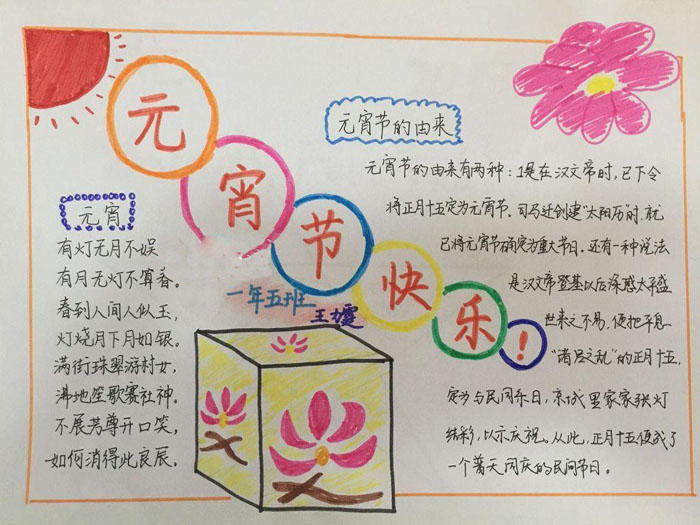 元宵节快乐！
一年五班
王
元宵
有灯无月不娱
有月无灯不算春。
春到人间人似玉，
灯烧月下月如银。
满街珠翠游村女，
沸地笙歌赛社神。
不展芳尊开口笑，
如何消得此良辰。
元宵节的由来
元宵节的由来有两种：1是在汉文帝时，已下令
将正月十五定为元宵节。司马迁创建“太阳历”时，就
已将元宵节确定为重大节日。还有一种说法
是汉文帝登基以后深感太平盛
世来之不易，便把平息
“诸吕之乱”的正月十五，
定为与民同乐日，京城里家家张灯
结彩，以示庆祝。从此，正月十五便成了
一个普天同庆的民间节日。